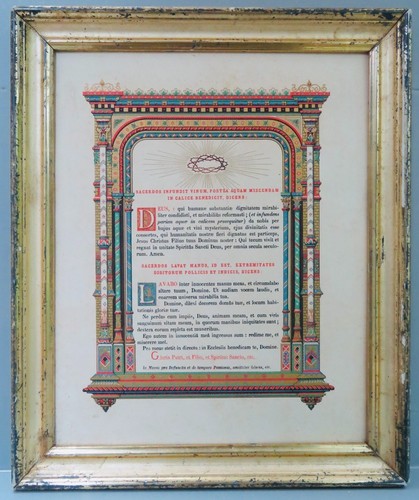 SACERDOS INFUNDIT VINUM, POSTEA AQUAM MISCENDAM
IN CALICE BENEDICIT, DICENS:
DEUS, qui humanæ substantiæ dignitatem mirabi-
liter condidisti, et mirabilius reformasti; (et infundens
parum aquæ in calicem prosequitur) da nobis per
hujus aquæ et vini mysterium, ejus divinitatis esse
consortes, qui humanitatis nostræ fieri dignatus est particeps,
Jesus Christus Filius tuus Dominus noster: Qui tecum vivit et
regnat in unitate Spiritûs Sancti Deus, per omnia sæcula sæcu-
lorum. Amen.
SACERDOS LAVAT MANUS, ID EST, EXTREMITATES
DIGITORUM POLLICIS ET INDICIS, DICENS
LAVABO inter innocentes manus meas, et circumdabo
altare tuum, Domine. Ut audiam vocem laudis, et
enarrem universa mirabilia tua.
Domine, dilexi decorem domûs tuæ, et locum habi-
tationis gloriæ tuæ.
Ne perdas cum impiis, Deus, animam meam, et cum viris
sanguinum vitam meam, in quorum manibus iniquitates sunt;
dextera eorum repleta est muneribus.
Ego autem in innocentiâ meâ ingressus sum: redime me, et
miserere mei.
Pes meus stetit in directo; in Ecclesiis benedicam te, Domine.
Gloria Patri, et Filio, et Spiritui Sancto, etc.
In Missis pro Defunctis et de tempore Passionis, omittitur Gloria, etc.